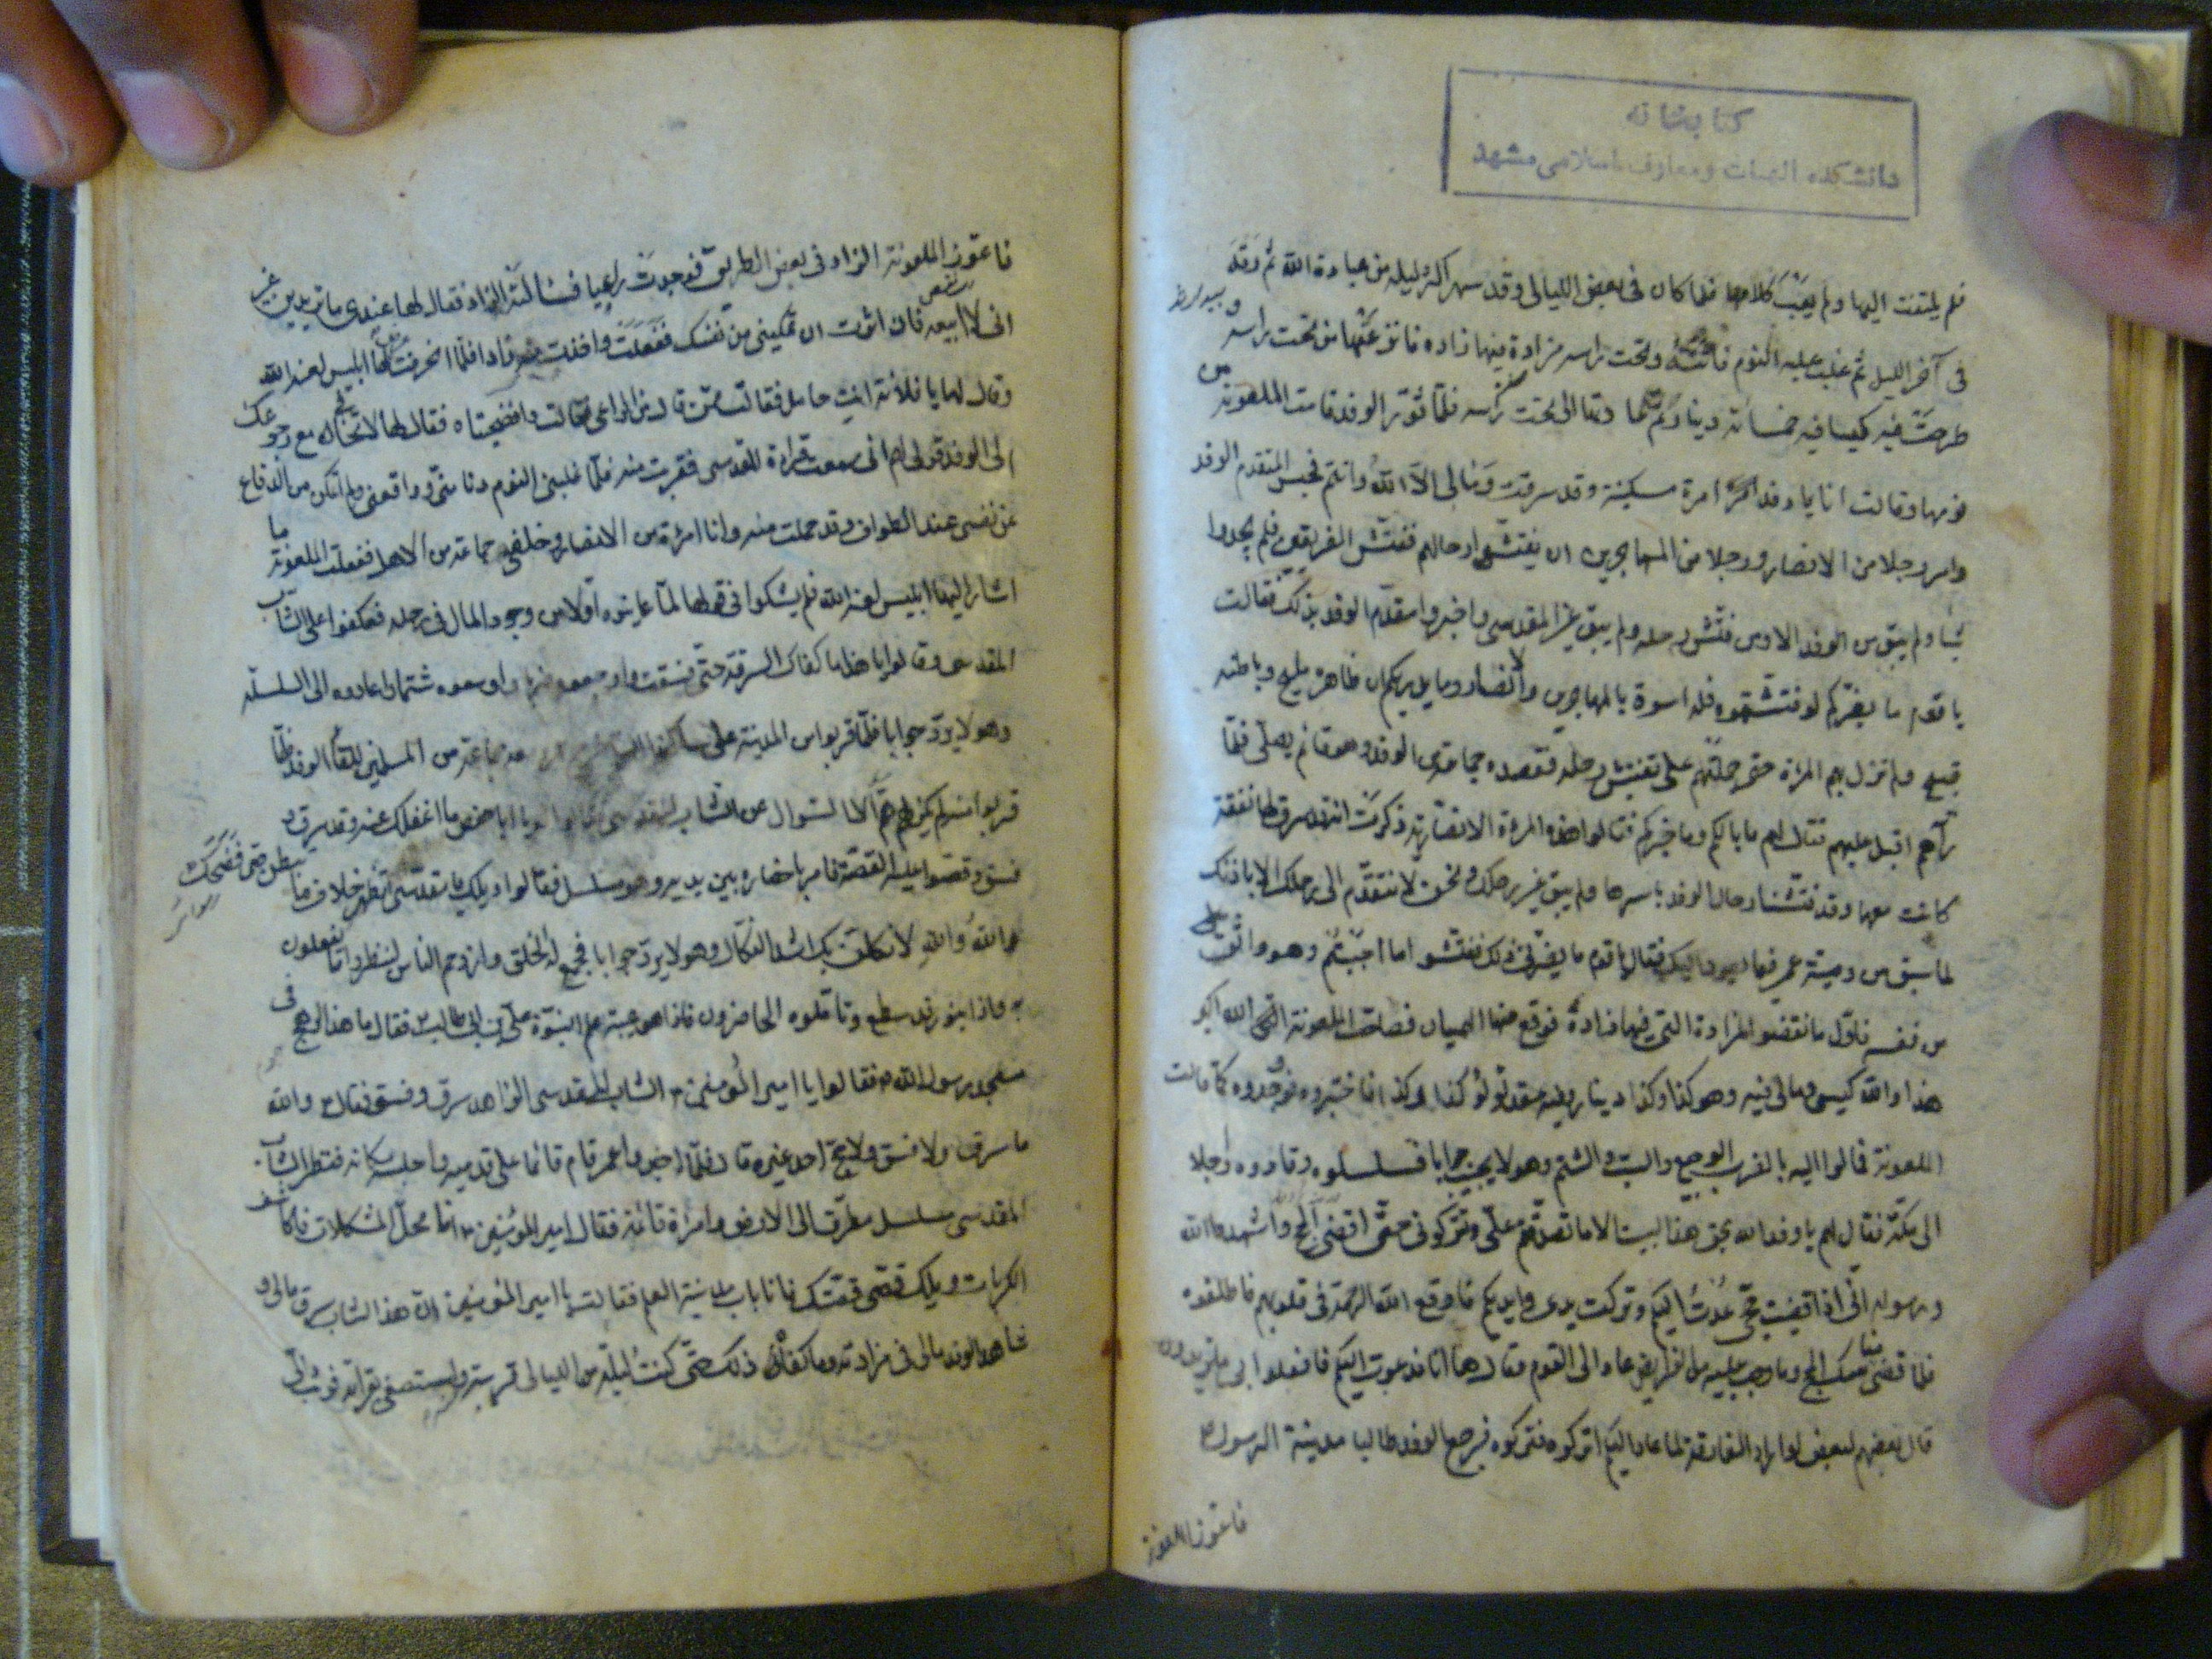 كتابخانه
دانشكده الهيات و معارف اسلامى مشهد
فلم يلتفت اليها ولم يعب كلامها فلما كان فى بعض الليالى وقد سهر اكثر ليله من عبادة الله ثم رقد
فى آخر الليل ثم غلب عليه النوم فاتته وتحت راسه مزادة فيها زاده فانتزعتها من تحت راسه و
طرحت فيه كيسا فيه خمسمائة دينار ثم دعا الى تحت راسه فلما ثور الوفد قامت الملعونة من
نومها وقالت انا يا وفد الله امرة مسكينة وقد سرقت ومالى الا الله وانتم فحبس المتقدم الوفد
وامر رجلا من الانصار ورجلا من المهاجرين ان يفتشوا رحالهم ففتش الفريقين فلم يجدوا
شيا ولم يبق من الوفد الا من فتش رحله ولم يبق غير المقدسى واخبروا مقدم الوفد بذلك فقالت
يا قوم ما يضركم لو فتشتموه فله اسوة بالمهاجرين والانصار وما يدريكم ان ظاهره مليح وباطنه
قبيح ولم تزل بهم المرئة حتى حملتهم على تفتيش رحله فقصده جماعة من الوفد وهو قائم يصلى فلما
رآهم اقبل عليهم فقال لهم ما بالكم وما خبركم فقالوا هذه المرءة الانصارية ذكرت انه قد سرق لها نفقة
كانت معها وقد فتشنا رحال الوفد باسرها ولم يبق غير رحلك ونحن لا نتقدم الى رحلك الا باذنك
لما سبق من وصية عمر فيما يعود اليك فقال يا قوم ما يضرنى ذلك ففتشوا ما احببتم وهو واثق
من نفسه فاول ما نفضوا المزادة التى فيها زاده فوقع منها الهميان فصاحت الملعونة الله اكبر
هذا والله كيسى ومالى فيه وهو كذا وكذا دينار وفيه عقد لولو كذا وكذا فاختبروه فوجدوه كما قالت
الملعونة فمالوا اليه بالضرب الوجيع والسب والشتم وهو لا يجيب جوابا فسلسلوه وقادوه راجلا
الى مكة فقال لهم يا وفد الله بحق هذا البيت الا ما تصدقتم على وتركتونى حتى اقضى الحج واشهد الله
ورسوله انى اذا قضيت حجى عدت اليكم وتركت يدى فى ايديكم فاوقع الله الرحمة فى قلوبهم فاطلقوه
فلما قضى مناسك الحج وما وجب عليه من الفرايض عاد الى القوم وقال ها انا قد عدت اليكم فافعلوا بى ما تريدون
قال بعضهم لبعض لو اراد المفارقة لما عاد اليكم اتركوه فتركوه فرجع الوفد طالبا مدينة الرسول ص
فاعوز الملعونة
فاعوز الملعونة الزاد فى بعض الطريق فوجدت راعيا فسالته الزاد فقال لها عندى ما تريدين غير
انى لا ابيعه فان اثرت ان تمكينى من نفسك ففعلت واخذت منه زادا فلما انحرفت لها ابليس لعنه الله
وقال لها يا فلانة انت حامل فقالت ممن قال من الراعى فقالت وافضيحتاه فقال لها لا تخافى مع رجوعك
الى الوفد قولى لهم انى سمعت قراءة المقدسى فقربت منه فلما غلبنى النوم دنا منى وواقعنى ولم اتمكن من الدفاع
عن نفسى عند الطواف وقد حملت منه وانا امرئة من الانصار وخلفى جماعة من الاهل ففعلت الملعونة ما
اشار اليها ابليس لعنه الله فلم يشكوا فى قولها لما عاينوه اولا من وجود المال فى رحله فعكفوا على الشاب
المقدسى وقالوا يا هذا ما كفاك السرقة حتى فسقت واوجعوه ضربا واوسعوه شتما واعادوه الى السلسلة
وهو لا يرد جوابا فلما قربوا من المدينة على ساكنها جماعة من المسلمين للقاء الوفد فلما
قربوا منه لم يكن لهم هم الا السوال عن الشاب المقدسى قالوا يا ابا حفص ما اغفلك عنه وقد سرق و
فسق وقصوا عليه القصة فامر باحضاره بين يديه وهو مسلسل فقالوا ويلك يا مقدسى تظهر خلاف ما تبطن حتى فضحك
الله والله لانكلن بك اشد النكال وهو لا يرد جوابا فجمع له الخلق وازدحم الناس لينظروا ما يفعلون
به واذا بنور قد سطع وتاملوه الحاضرون فاذا هو عيبة علم النبوة على بن ابى طالب فقال ما هذا الرهج فى
مسجد رسول الله ص فقالوا يا امير المؤمنين ان الشاب المقدسى الزاهد سرق وفسق فقال والله
ما سرق ولا فسق ولا حج احد غيره قال فلما اخبروا عمر قام قائما على قدميه واجلسه مكانه فنظر الشاب
المقدسى مسلسل مطرق الى الارض وامراة قائمة فقال امير المؤمنين ع انا محل المشكلات وكاشف
الكربات ويلك قصى قصتك فانا باب مدينة العلم فقالت يا امير المؤمنين ان هذا الشاب سرق مالى و
شاهد الوفد مالى فى مزادته وما كفاه ذلك حتى كنت ليلة من الليالى قريبة منه فوثب الى